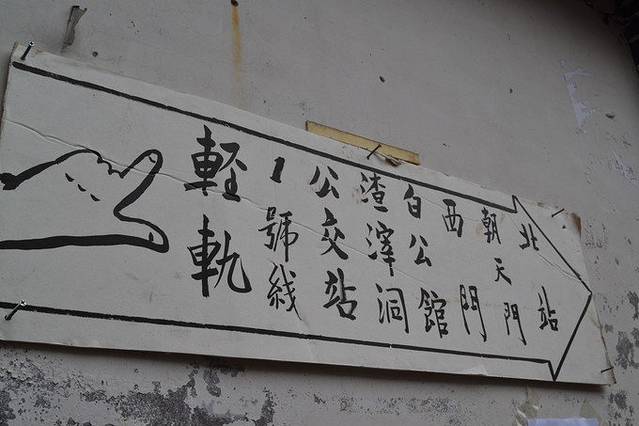 軽軌
1號线
公交站
渣滓洞
白公館
西門
朝天門
北站